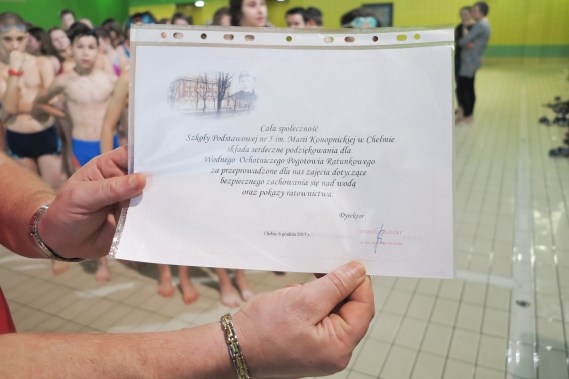 Cała społeczność
Szkoły Podstawowej nr 5 im. Marii Konopnickiej w Chełmie
składa serdeczne podziękowania dla
Wodnego Ochotniczego Pogotowia Ratunkowego
za przeprowadzone dla nas zajęcia dotyczące
bezpiecznego zachowania się nad wodą
oraz pokazy ratownictwa.
Dyrektor
Chełm, 6 grudnia 2017 r.